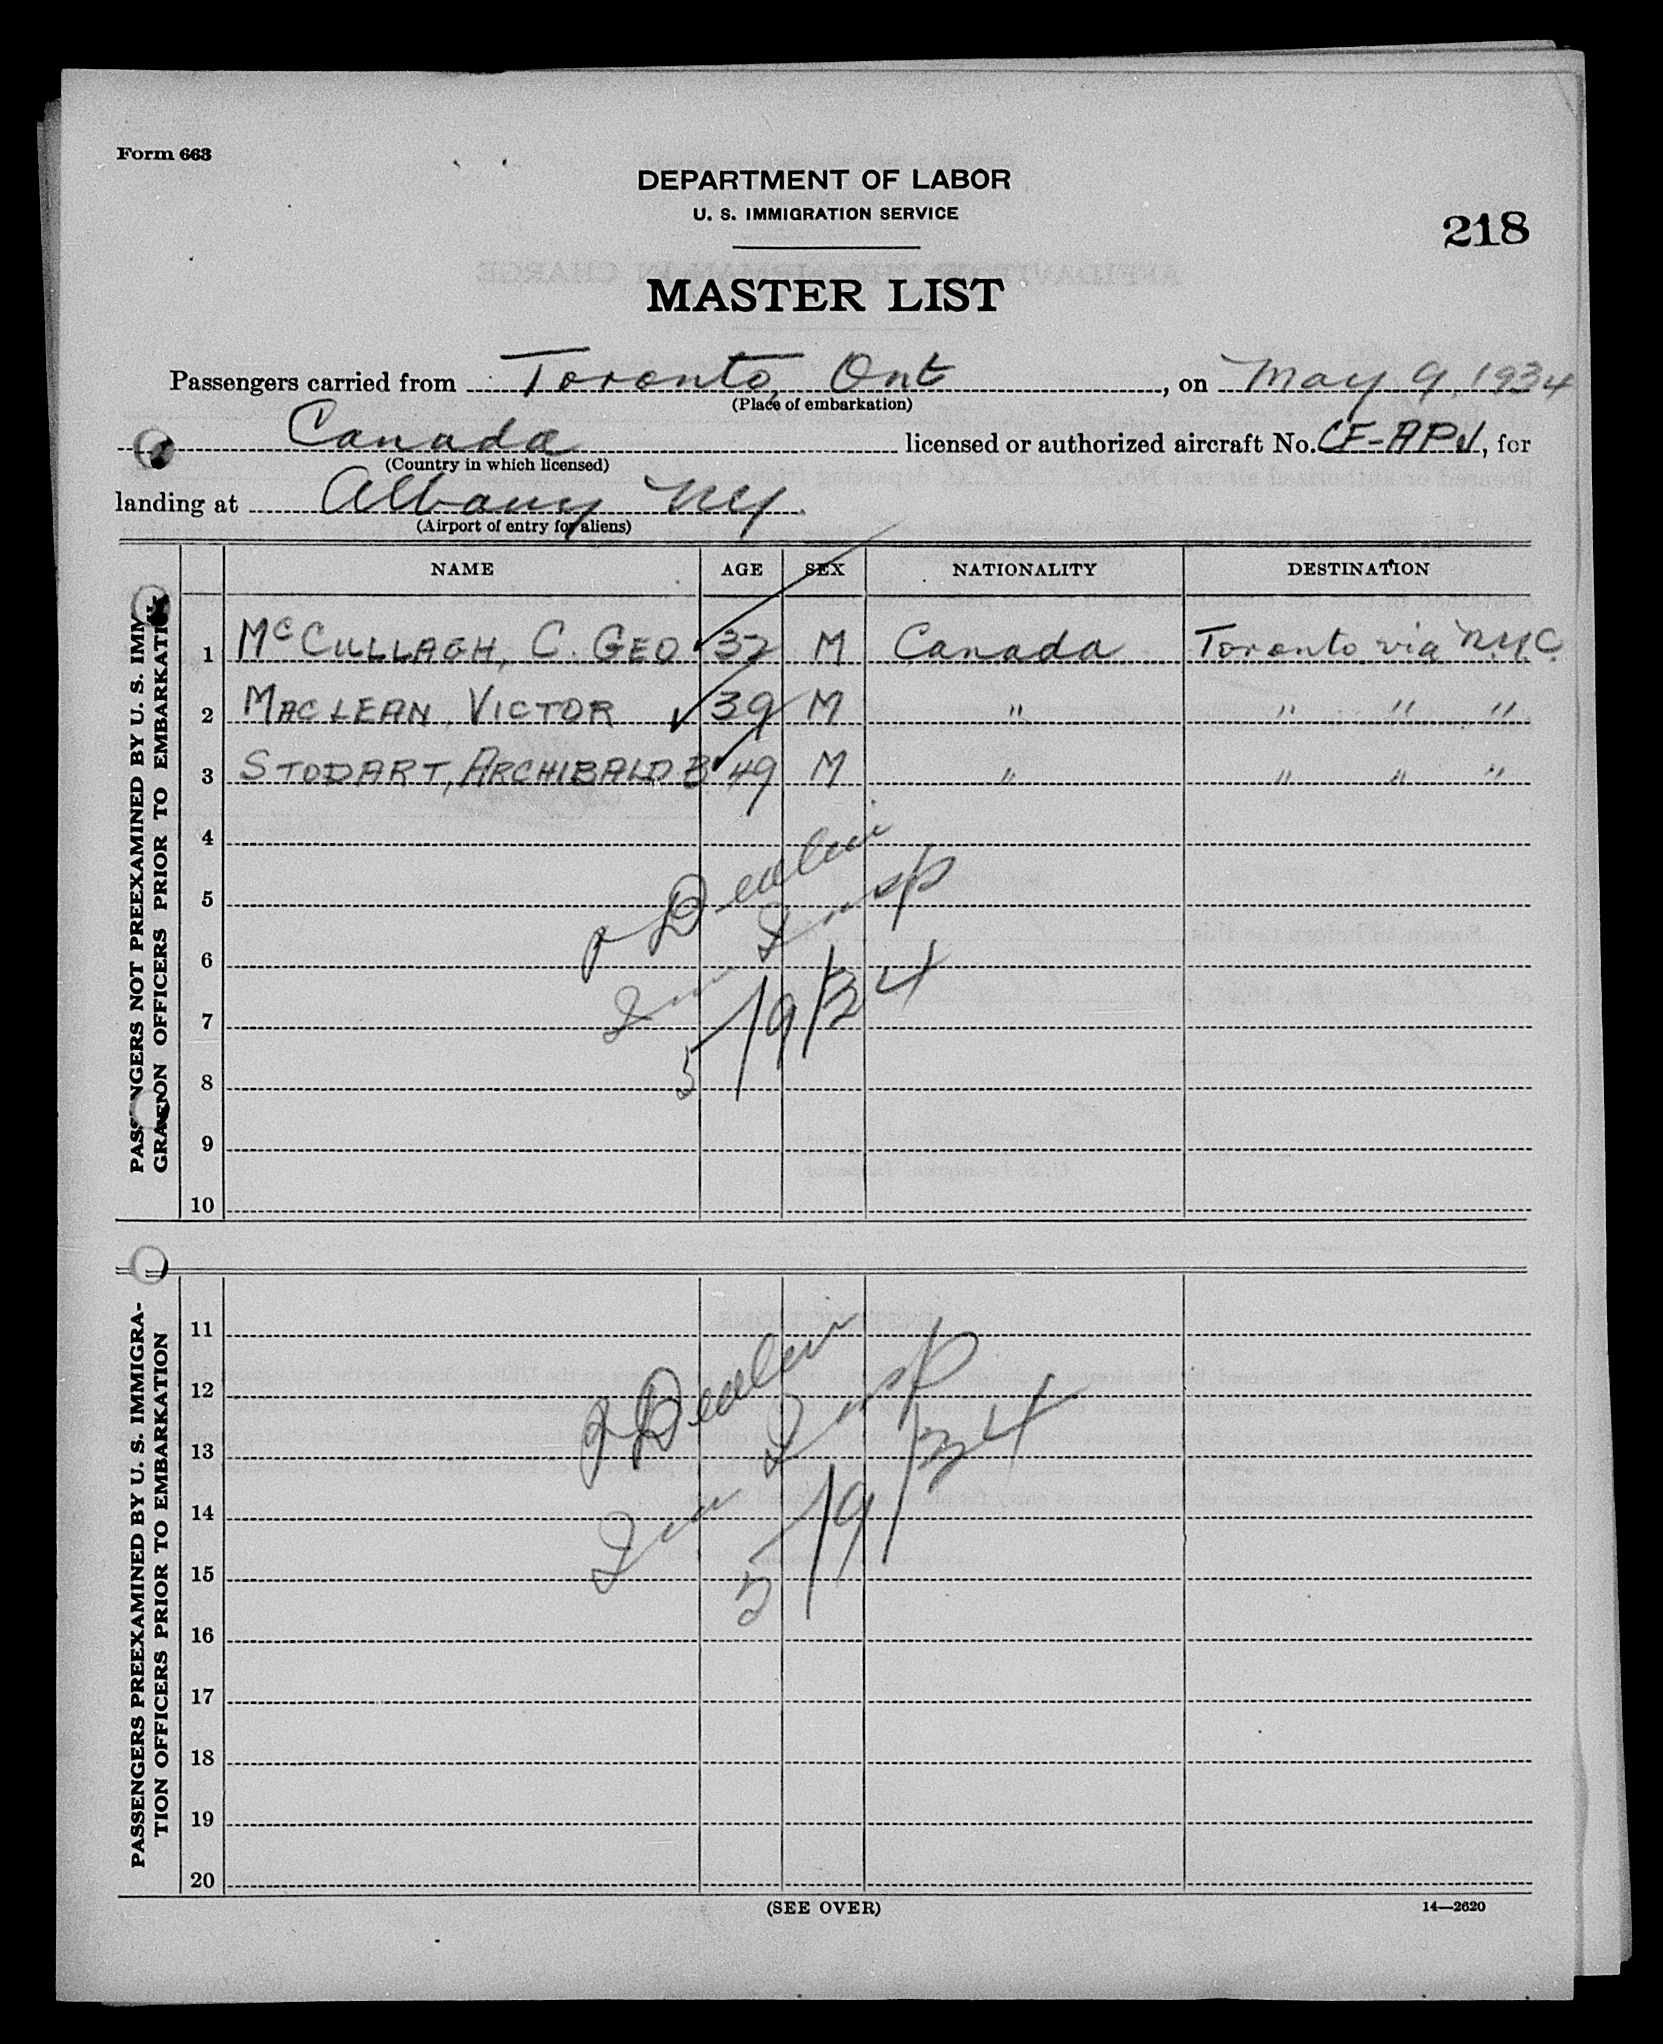 Form 663
DEPARTMENT OF LABOR
U. S. IMMIGRATION SERVICE
218
MASTER LIST
Passengers carried from Toronto, Ont, on May 9, 1934
(Place of embarkation)
Canada licensed or authorized aircraft No. CF-APJ, for
(Country in which licensed)
landing at Albany NY.
(Airport of entry for aliens)
NAME AGE SEX NATIONALITY DESTINATION
PASSENGERS NOT PREEXAMINED BY U. S. IMMI-
GRATION OFFICERS PRIOR TO EMBARKATION
1 McCULLAGH, C. GEO 32 M Canada Toronto via N.Y.C.
2 MACLEAN, VICTOR 39 M " " " "
3 STODART, ARCHIBALD B 49 M " " " "
4
5
6
7
8
9
10
Insp
Imm
5/9/34
PASSENGERS PREEXAMINED BY U. S. IMMIGRA-
TION OFFICERS PRIOR TO EMBARKATION
11
12
13
14
15
16
17
18
19
20
Insp
Imm
5/9/34
(SEE OVER)
14—2620